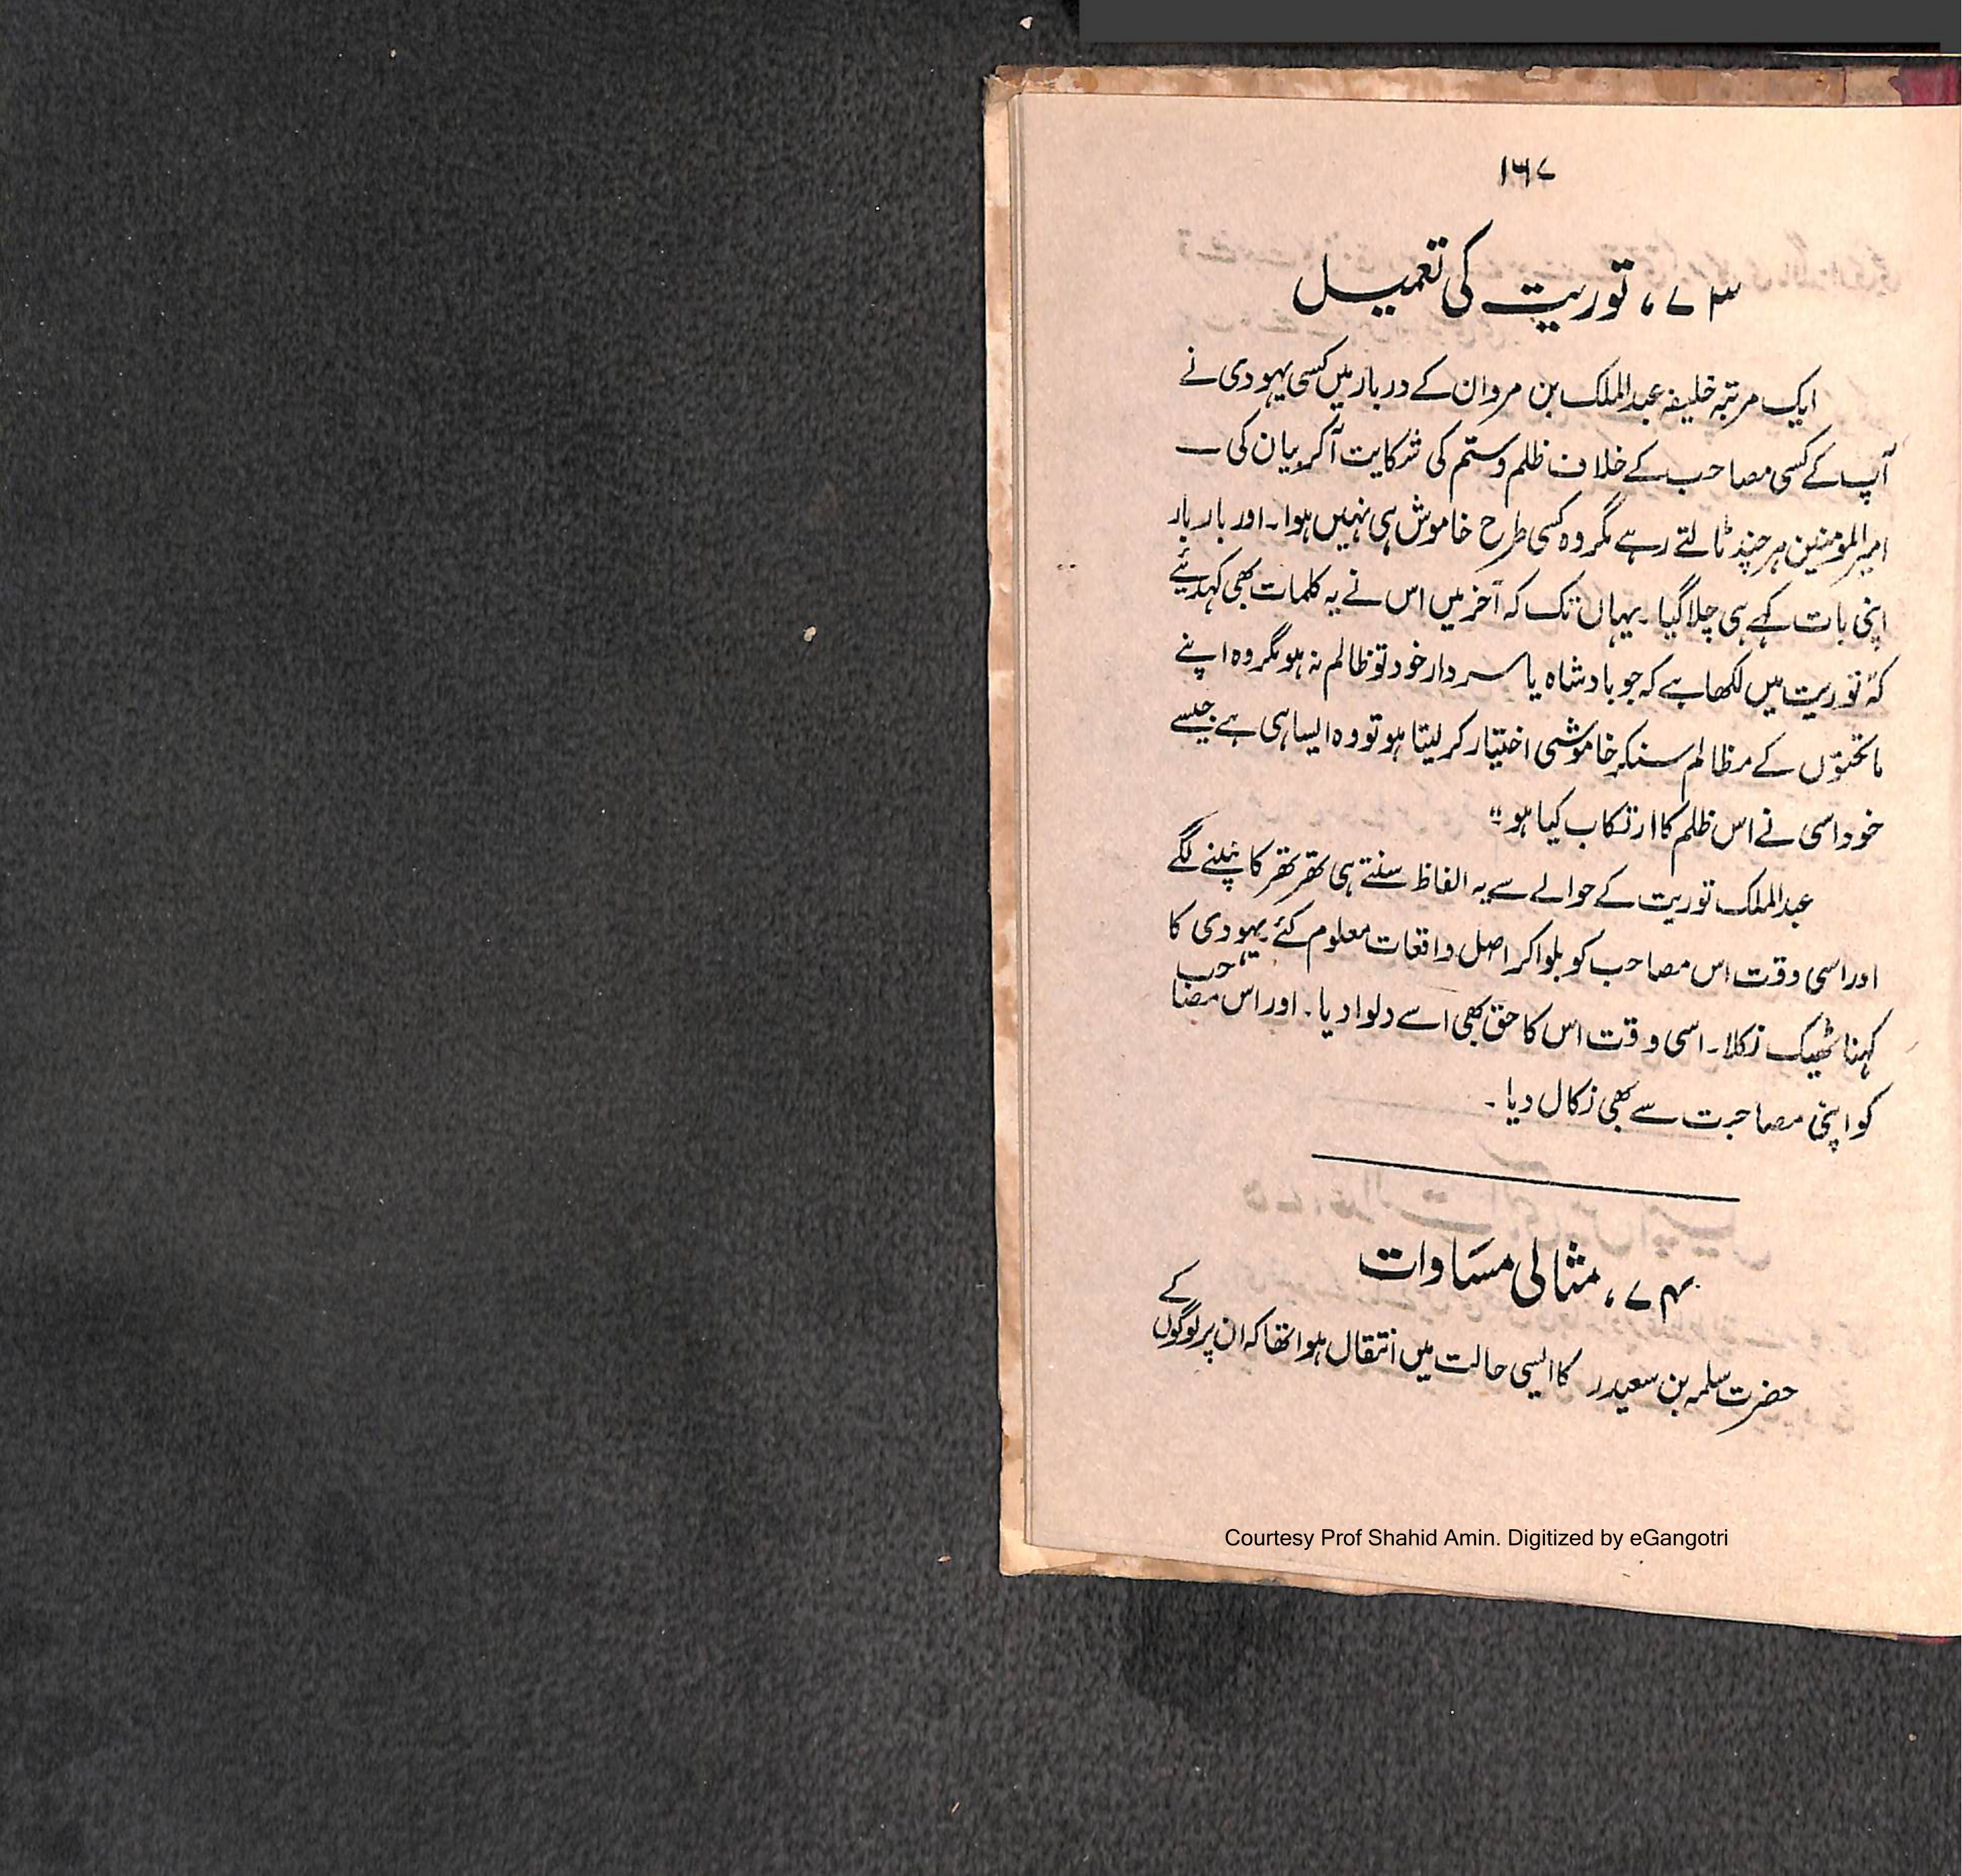 ۱۶۷
۷۳، توریت کی تعمیل
ایک مرتبہ خلیفہ عبدالملک بن مروان کے دربار میں کسی یہودی نے
آپ کے کسی مصاحب کے خلاف ظلم و ستم کی شکایت آکر بیان کی۔
امیرالمومنین ہر چند ٹالتے رہے مگر وہ کسی طرح خاموش ہی نہیں ہوا۔ اور بار بار
اپنی بات کہے ہی چلا گیا۔ یہاں تک کہ آخر میں اس نے یہ کلمات بھی کہدیئے
کہ توریت میں لکھا ہے کہ جو بادشاہ یا سردار خود تو ظالم نہ ہو مگر وہ اپنے
ماتحتوں کے مظالم سنکر خاموشی اختیار کر لیتا ہو تو وہ ایسا ہی ہے جیسے
خود اسی نے اس ظلم کا ارتکاب کیا ہو"
عبدالملک توریت کے حوالے سے یہ الفاظ سنتے ہی تھر تھر کانپنے لگے
اور اسی وقت اس مصاحب کو بلوا کر اصل واقعات معلوم کئے یہودی کا
کہنا ٹھیک نکلا۔ اسی وقت اس کا حق بھی اسے دلوا دیا۔ اور اس مصاحب
کو اپنی مصاحبت سے بھی نکال دیا۔
۷۴، مثالی مساوات
حضرت سلمہ بن سعیدؒ کا ایسی حالت میں انتقال ہوا تھا کہ ان پر لوگوں کے
Courtesy Prof Shahid Amin. Digitized by eGangotri